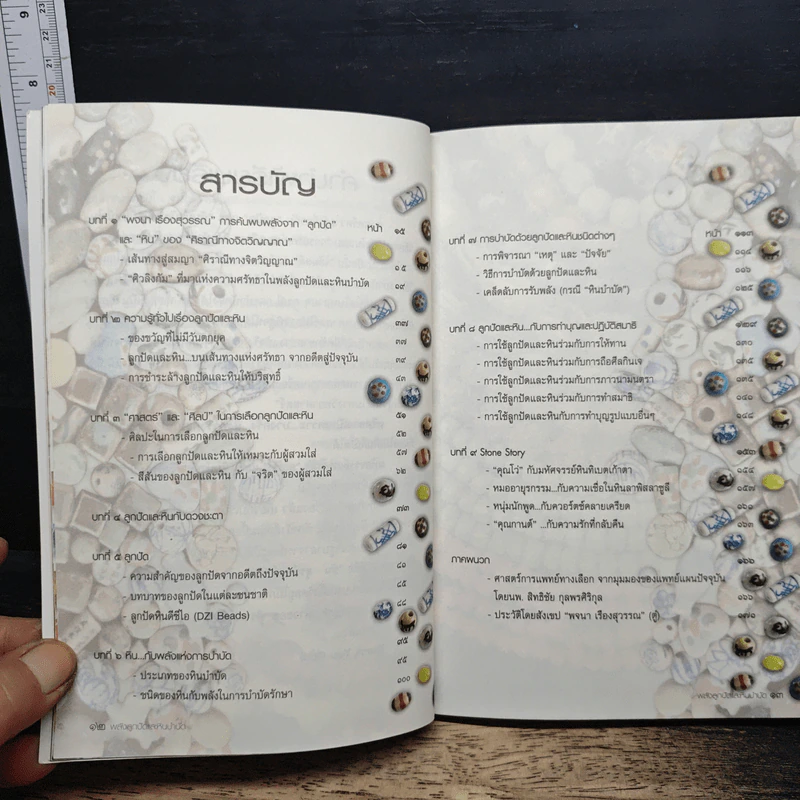 สารบัญ
บทที่ ๑ "พจนา เรืองสุวรรณ" การค้นพบพลังจาก "ลูกปัด" หน้า ๑๕
และ "หิน" ของ "ศิราณีทางจิตวิญญาณ"
- เส้นทางสู่สมญา "ศิราณีทางจิตวิญญาณ" ๑๕
- "ศิวลึงคัม" ที่มาแห่งความศรัทธาในพลังลูกปัดและหินบำบัด ๑๙
บทที่ ๒ ความรู้ทั่วไปเรื่องลูกปัดและหิน ๓๗
- ของขวัญที่ไม่มีวันตกยุค ๓๗
- ลูกปัดและหิน...บนเส้นทางแห่งศรัทธา จากอดีตสู่ปัจจุบัน ๓๙
- การชำระล้างลูกปัดและหินให้บริสุทธิ์ ๔๓
บทที่ ๓ "ศาสตร์" และ "ศิลป์" ในการเลือกลูกปัดและหิน ๕๑
- ศิลปะในการเลือกลูกปัดและหิน ๕๒
- การเลือกลูกปัดและหินให้เหมาะกับผู้สวมใส่ ๕๗
- สีสันของลูกปัดและหิน กับ "จริต" ของผู้สวมใส่ ๖๒
บทที่ ๔ ลูกปัดและหินกับดวงชะตา ๗๓
บทที่ ๕ ลูกปัด ๘๑
- ความสำคัญของลูกปัดจากอดีตถึงปัจจุบัน ๘๐
- บทบาทของลูกปัดในแต่ละชนชาติ ๘๕
- ลูกปัดหินดีซีไอ (DZI Beads) ๘๘
บทที่ ๖ หิน...กับพลังแห่งการบำบัด ๙๕
- ประเภทของหินบำบัด ๙๕
- ชนิดของหินกับพลังในการบำบัดรักษา ๑๐๐
๑๒ พลังลูกปัดและหินบำบัด
บทที่ ๗ การบำบัดด้วยลูกปัดและหินชนิดต่างๆ หน้า ๑๑๓
- การพิจารณา "เหตุ" และ "ปัจจัย" ๑๑๔
- วิธีการบำบัดด้วยลูกปัดและหิน ๑๑๖
- เคล็ดลับการรับพลัง (กรณี "หินบำบัด") ๑๒๕
บทที่ ๘ ลูกปัดและหิน...กับการทำบุญและปฏิบัติสมาธิ ๑๒๙
- การใช้ลูกปัดและหินร่วมกับการให้ทาน ๑๓๐
- การใช้ลูกปัดและหินร่วมกับการถือศีลกินเจ
- การใช้ลูกปัดและหินร่วมกับการภาวนามนตรา ๑๓๕
- การใช้ลูกปัดและหินร่วมกับการทำสมาธิ
- การใช้ลูกปัดและหินกับการทำบุญรูปแบบอื่นๆ ๑๔๘
บทที่ ๙ Stone Story ๑๕๓
- "คุณโว่" กับมหัศจรรย์หินทิเบตเก้าตา ๑๕๔
- หมออายุรกรรม...กับความเชื่อในหินลาพิสลาซูลี ๑๕๗
- หนุ่มนักพูด...กับควอร์ตซ์คลายเครียด ๑๖๑
- "คุณกานต์" ...กับความรักที่กลับคืน ๑๖๓
ภาคผนวก ๑๖๖
- ศาสตร์การแพทย์ทางเลือก จากมุมมองของแพทย์แผนปัจจุบัน
โดยนพ. สิทธิชัย กุลพรศิริกุล ๑๖๖
- ประวัติโดยสังเขป "พจนา เรืองสุวรรณ" (ตู่) ๑๗๑
พลังลูกปัดและหินบำบัด ๑๓
9
8
23
22
21
20